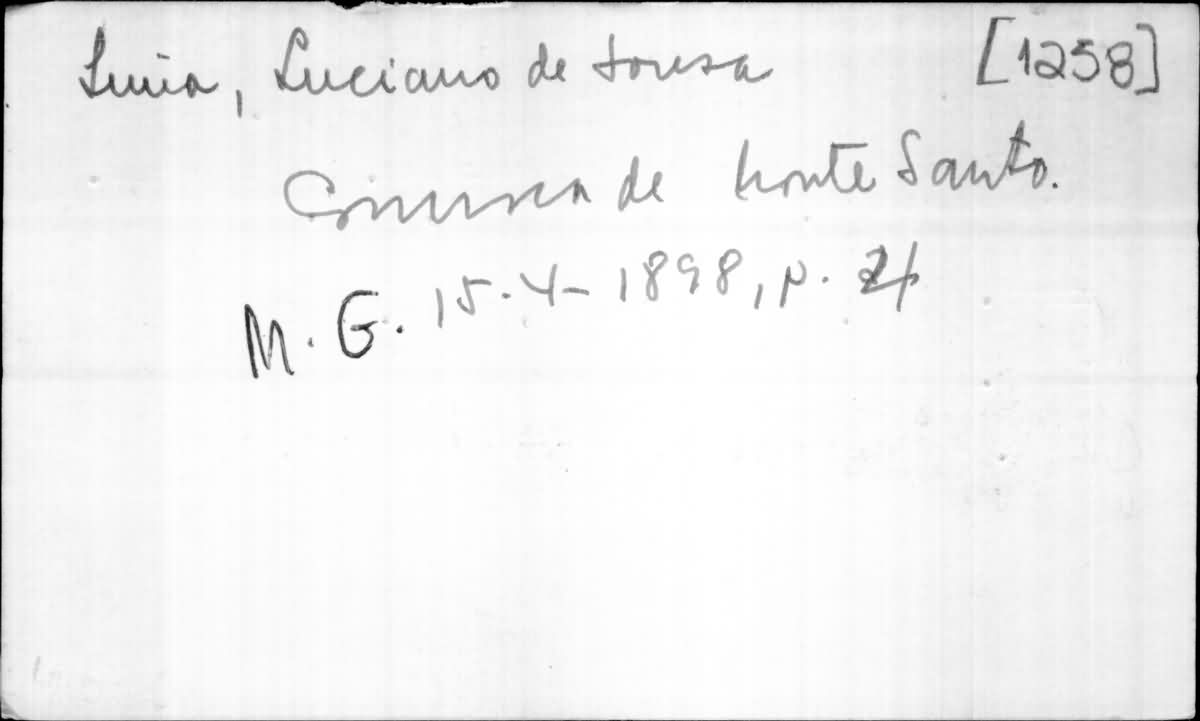 Lima, Luciano de Sousa [1258]
Comarca de Monte Santo.
M. G. 15-4-1898, p.